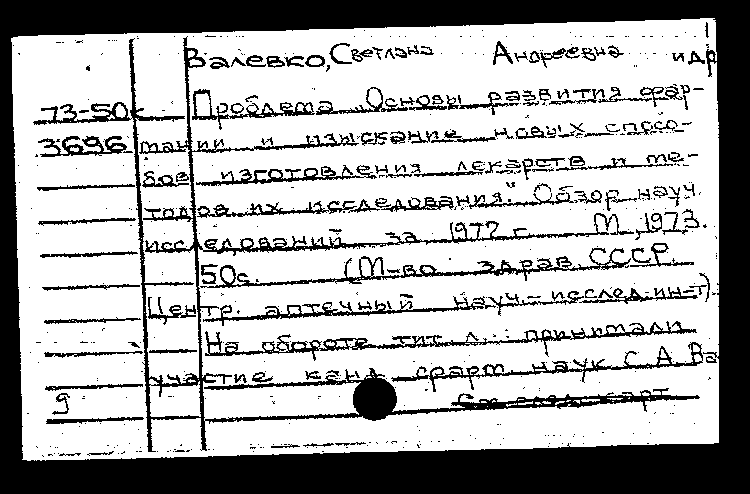 Валевко, Светлана Андреевна и др
73-50к Проблема „Основы развития фар-
3696 мации и изыскание новых спосо-
бов изготовления лекарств и ме-
тодов их исследования". Обзор науч.
исследований за 1972 г. М., 1973.
50с. (М-во здрав. СССР.
Центр. аптечный науч.-исслед. ин-т).
На обороте тит. л.: принимали
участие канд. фарм. наук С. А. Ва
9 См. след. карт.